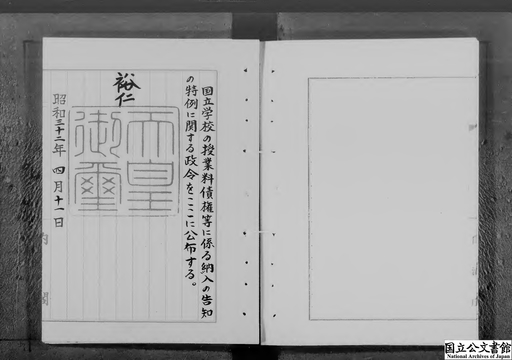 国立学校の授業料債権等に係る納入の告知
の特例に関する政令をここに公布する。
裕仁
天皇
御璽
昭和三十二年 四月十一日
内閣
国立公文書館
National Archives of Japan